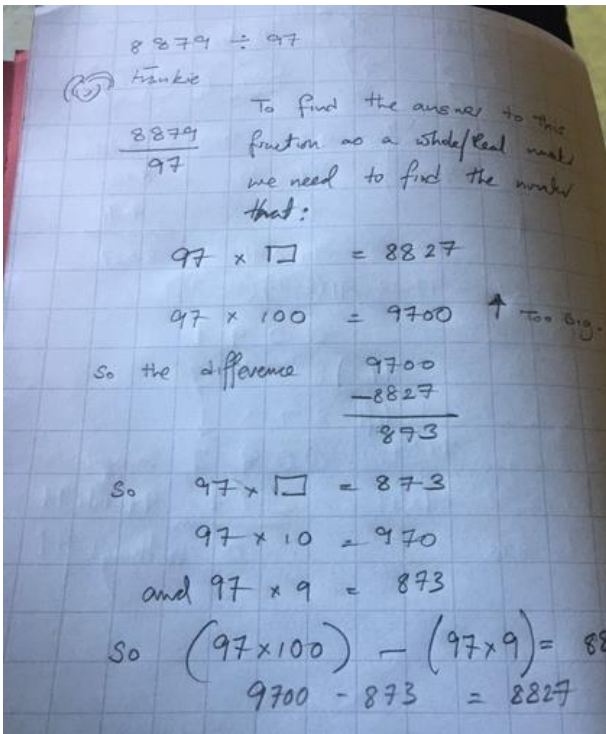 8879 ÷ 97
Frankie
To find the answer to this
8879
97
fraction as a whole/Real
we need to find the number
that:
97 × □ = 8827
97 × 100 = 9700 ↑ Too Big.
So the difference 9700
-8827
873
So 97 × □ = 873
97 × 10 = 970
and 97 × 9 = 873
So (97×100) - (97×9) = 88
9700 - 873 = 8827